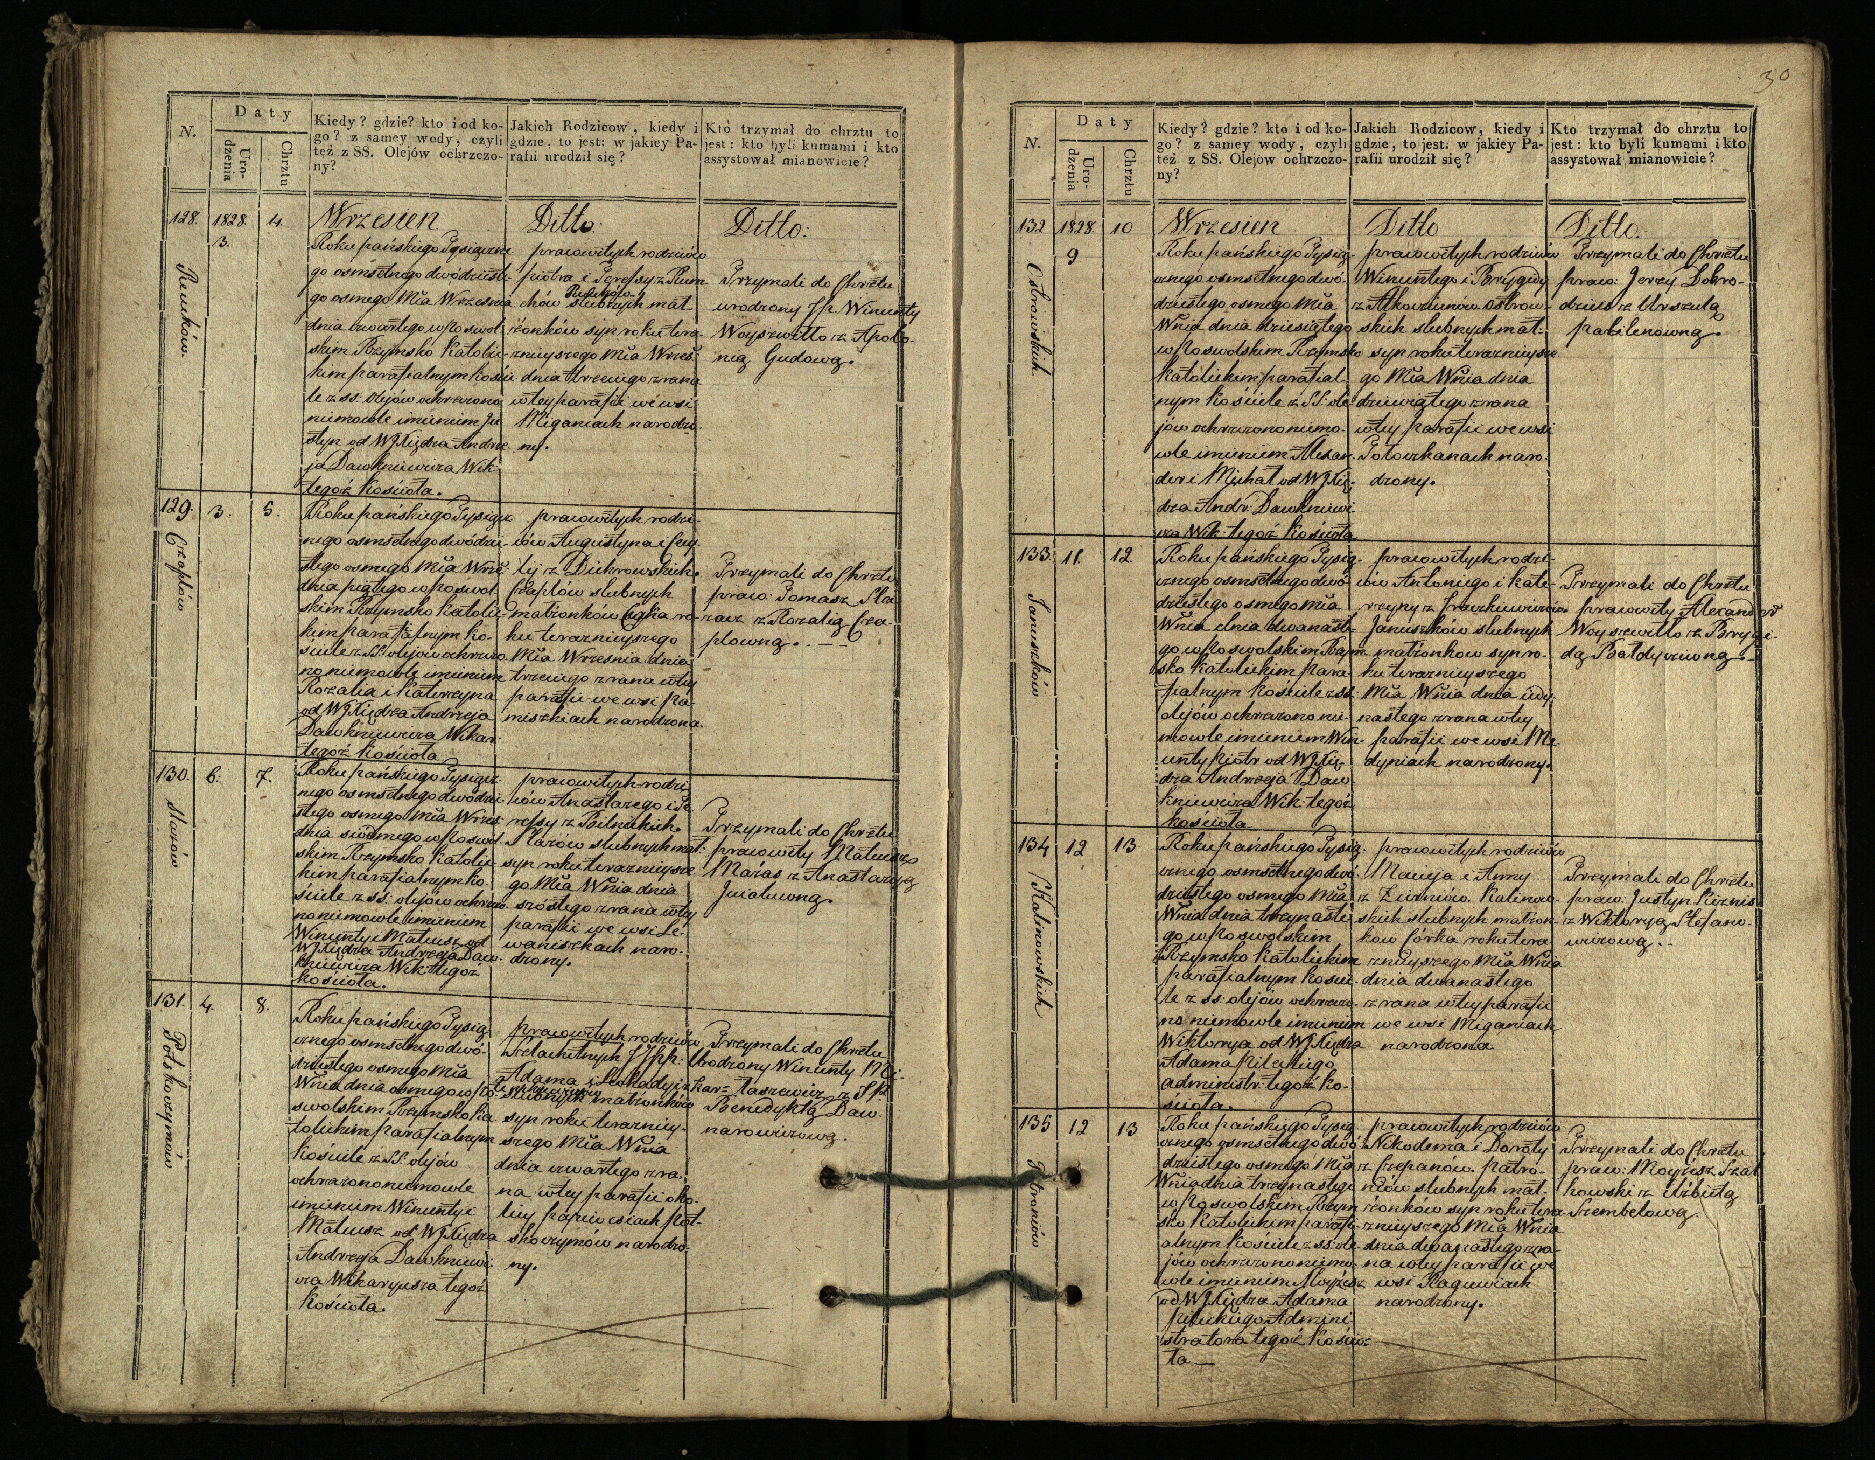 N.
Daty
Uro-
dzenia
Chrztu
Kiedy? gdzie? kto i od ko-
go? z samey wody, czyli
też z SS. Olejów ochrzczo-
ny?
Jakich Rodziców, kiedy i
gdzie, to jest: w jakiey Pa-
rafii urodził się?
Kto trzymał do chrztu to
jest: kto byli kumami i kto
assystował mianowicie?
128.
1828.
3.
4.
Wrzesien
Roku pańskiego Tysiączne
go osmsetnego dwódzieste
go osmego Mca Wrzesnia
dnia czwartego w Poswol
skim Rzymsko Katolic
kim parafialnym Koście
le z SS. olejów ochrzczono
niemowle imieniem Ju
styn od WJXiędza Andrze
ja Dawkniewicza Wik.
tegoż Kościoła.
Ditto
pracowitych rodziców
piotra i
slubnych mat
żonków syn roku tera
znieyszego Mca Wrześ
dnia trzeciego zrana
w tey parafii we wsi
Miganiach narodzo
ny.
Ditto:
Trzymali do Chrztu
urodzony JP. Wincenty
Woyszwiłło z Apolo
nią Gudową.
129.
3.
5.
Czaplów
Roku pańskiego Tysiącz
nego osmsetnego dwódzie
stego osmego Mca Wrzś
dnia piątego w Poswol
skim Rzymsko Katolic
kim parafialnym Ko
ściele z SS. olejów ochrzczo
no niemowle imieniem
Rozalia i Katerzyna
od WJXiędza Andrzeja
Dawkniewicza Wikar.
tegoż Kościoła
pracowitych rodzi
ców Augustyna i Cecy
lij z Dichrowskich
Czaplów slubnych
małżonków Córka ro
ku teraznieyszego
Mca Wrzesnia dnia
trzeciego zrana w tey
parafii we wsi Ka
miszkiach narodzona.
Trzymali do Chrztu
praco: Tomasz
z Rozalią Cza
plowną.
130.
6.
7.
Roku pańskiego Tysiącz
nego osmsetnego dwódzie
stego osmego Mca Wrześ
dnia siódmego w Poswol
skim Rzymsko Katolic
kim parafialnym Ko
ściele z SS. olejów ochrzczo
no niemowle imieniem
Wincenty i Mateusz od
WJXiędza Andrzeja Daw
kniewicza Wik. tegoż
Kościoła.
pracowitych rodzi
ców Anastazego i Te
ressy z Bilnskich
slubnych mał:
syn roku teraznieysze
go Mca Wśnia dnia
szóstego zrana w tey
parafii we wsi Le
waniszkach naro
dzony.
Trzymali do Chrztu
pracowity Mateusz
z Anastazyą
131.
4.
8.
Roku pańskiego Tysią
cznego osmsetnego dwó
dziestego osmego Mca
Wśnia dnia osmego w Po
swolskim Rzymsko Ka
tolickim parafialnym
Kościele z SS. olejów
ochrzczono niemowle
imieniem Wincenty i
Mateusz od WJXiędza
Andrzeja Dawkniewi
cza Wikaryusza tegoż
Kościoła.
pracowitych rodziców
Szlachetnych JJPP.
Adama i Leokadyi z
slubnych małżonków
syn roku terazniey
szego Mca Wśnia
dnia czwartego zra
na w tey parafii oko
licy
narodzo
ny.
Trzymali do Chrztu
Urodzony Wincenty
z JP.
Benedyktą Daw
narowiczową.
30
N.
Daty
Uro-
dzenia
Chrztu
Kiedy? gdzie? kto i od ko-
go? z samey wody, czyli
też z SS. Olejów ochrzczo-
ny?
Jakich Rodziców, kiedy i
gdzie, to jest: w jakiey Pa-
rafii urodził się?
Kto trzymał do chrztu to
jest: kto byli kumami i kto
assystował mianowicie?
132
1828
9
10
Ostrowskich
Wrzesien
Roku pańskiego Tysią
cznego osmsetnego dwó
dziestego osmego Mca
Wśnia dnia dziesiątego
w Poswolskim Rzymsko
Katolickim parafial
nym Kościele z SS. ole
jów ochrzczono niemo
wle imieniem Alexan
der i Michał od WJXię
dza Andr: Dawkniewi
cza Wik. tegoż Kościoła
Ditto
pracowitych rodziców
Wincentego i Brygidy
Ostrow
skich slubnych mał:
syn roku teraznieysze
go Mca Wśnia dnia
dziewiątego zrana
w tey parafii we wsi
naro
dzony.
Ditto.
Trzymali do Chrztu
praco: Jerzy Dobro
z Urszulą
133.
11.
12.
Januszków
Roku pańskiego Tysią
cznego osmsetnego dwó
dziestego osmego Mca
Wśnia dnia dwanaste
go w Poswolskim Rzym
sko Katolickim para
fialnym Kościele z SS.
olejów ochrzczono nie
mowle imieniem Win
centy Piotr od WJXię
dza Andrzeja Daw
kniewicza Wik. tegoż
Kościoła
pracowitych rodzi
ców Antoniego i Kate
rzyny z
Januszków slubnych
małżonkow syn ro
ku teraznieyszego
Mca Wśnia dnia jedy
nastego zrana w tey
parafii we wsi Me
dyniach narodzony.
Trzymali do Chrztu
pracowity Alexander
Woyszwiłło z Brygi
dą
134
12
13
Kalinowskich
Roku pańskiego Tysią
cznego osmsetnego dwó
dziestego osmego Mca
Wśnia dnia trzynaste
go w Poswolskim
Rzymsko Katolickim
parafialnym Koscie
le z SS. olejów ochrzczo
no niemowle imieniem
Wiktorya od WJXiędza
Adama Pileckiego
administr: tegoż Ko
ścioła.
pracowitych rodziców
Macieja i Anny
z Kalinow
skich slubnych małżon
kow Córka roku tera
znieyszego Mca Wśnia
dnia dwanastego
zrana w tey parafii
we wsi Miganiach
narodzona
Trzymali do Chrztu
praco: Justyn
z Wiktoryą Stefano
wiczową.
135
12
13
Roku pańskiego Tysią
cznego osmsetnego dwó
dziestego osmego Mca
Wśnia dnia trzynastego
w Poswolskim Rzym
sko Katolickim parafi
alnym Kościele z SS. ole
jów ochrzczono niemo
wle imieniem Moyżesz
od WJXiędza Adama
Pileckiego Admini
stratora tegoż Kościo
ła
pracowitych rodziców
Nikodema i Doroty
z Czepanów
slubnych mał
żonków syn roku tera
znieyszego Mca Wśnia
dnia dwanastego zra
na w tey parafii we
wsi Raguwiach
narodzony.
Trzymali do Chrztu
praco: Moyżesz
z Elżbietą